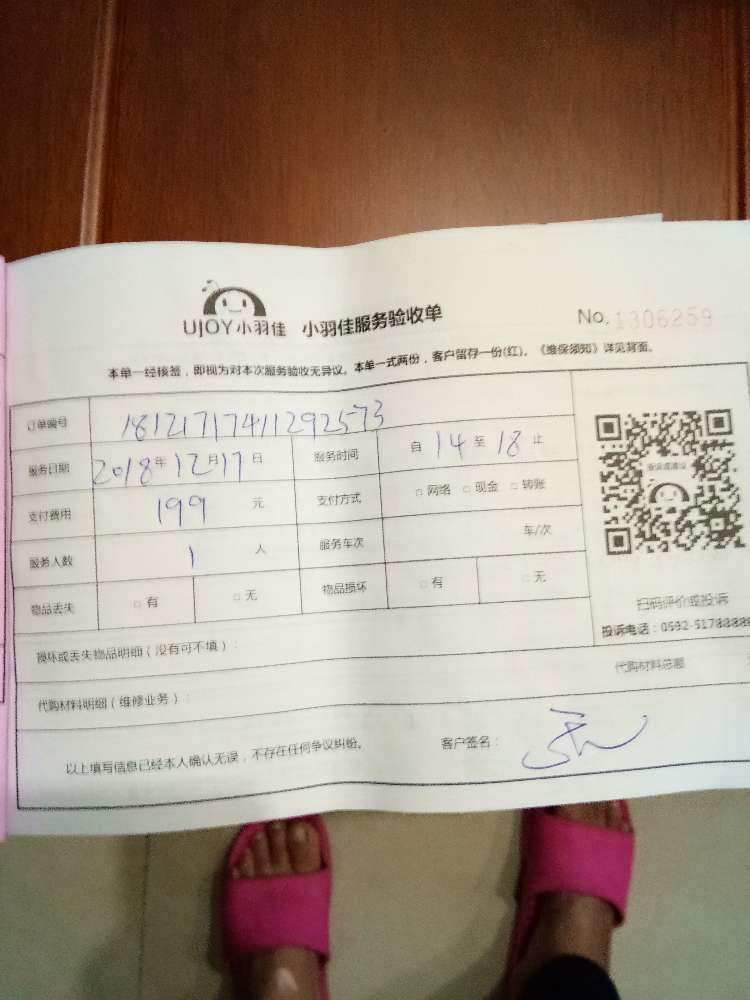 UJOY小羽佳 小羽佳服务验收单 No. 1306259
本单一经核签，即视为对本次服务验收无异议。本单一式两份，客户留存一份(红)。《维保须知》详见背面。
订单编号 18121717411292573
服务日期 2018年12月17日 服务时间 自14至18止
支付费用 199元 支付方式 □网络 □现金 □转账
服务人数 1人 服务车次 车/次
物品丢失 □有 □无 物品损坏 □有 □无
扫码评价或投诉
投诉电话：0592-5178888
损坏或丢失物品明细（没有可不填）：
代购材料明细（维修业务）： 代购材料总额
以上填写信息已经本人确认无误，不存在任何争议纠纷。 客户签名：